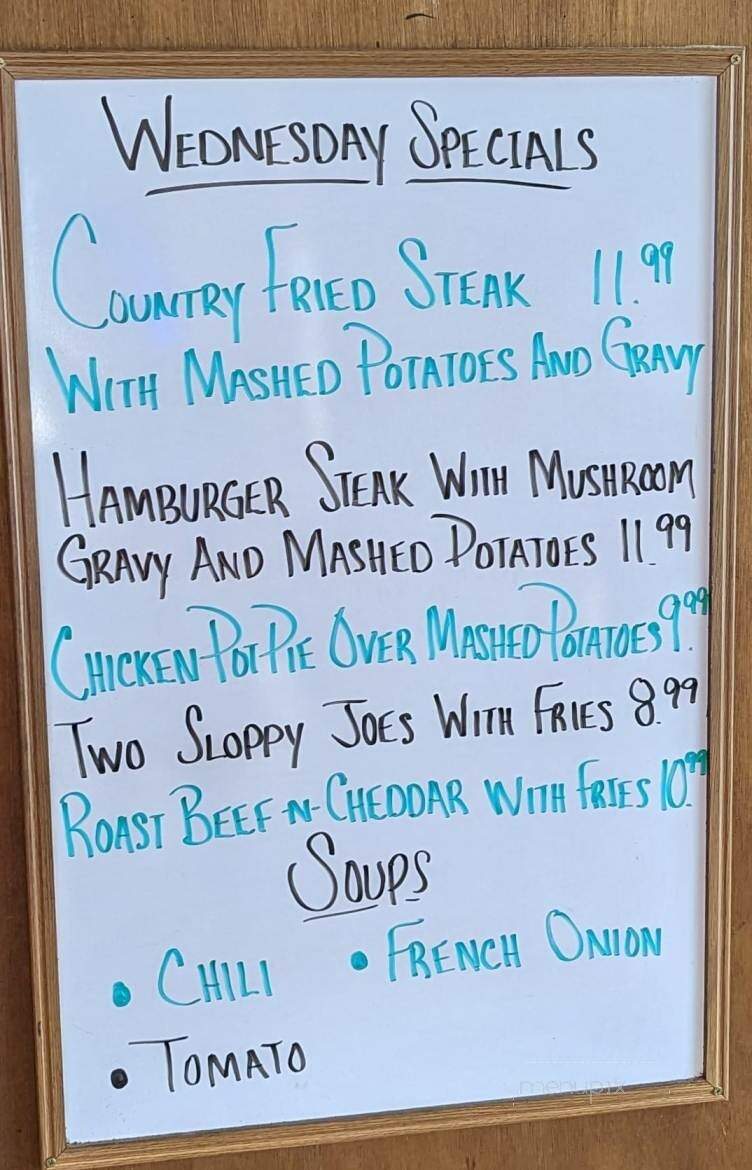 WEDNESDAY SPECIALS
COUNTRY FRIED STEAK 11.99
WITH MASHED POTATOES AND GRAVY
HAMBURGER STEAK WITH MUSHROOM
GRAVY AND MASHED POTATOES 11.99
CHICKEN POT PIE OVER MASHED POTATOES 9.99
TWO SLOPPY JOES WITH FRIES 8.99
ROAST BEEF-N-CHEDDAR WITH FRIES 10.99
SOUPS
• CHILI • FRENCH ONION
• TOMATO
menupix